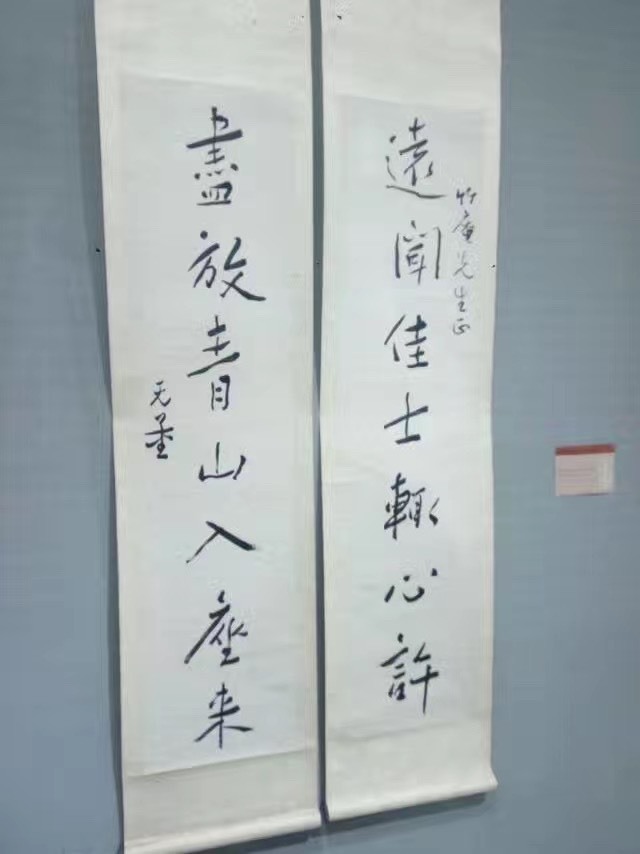 遠聞佳士輒心許
竹庵先生正
盡放青山入座来
无量